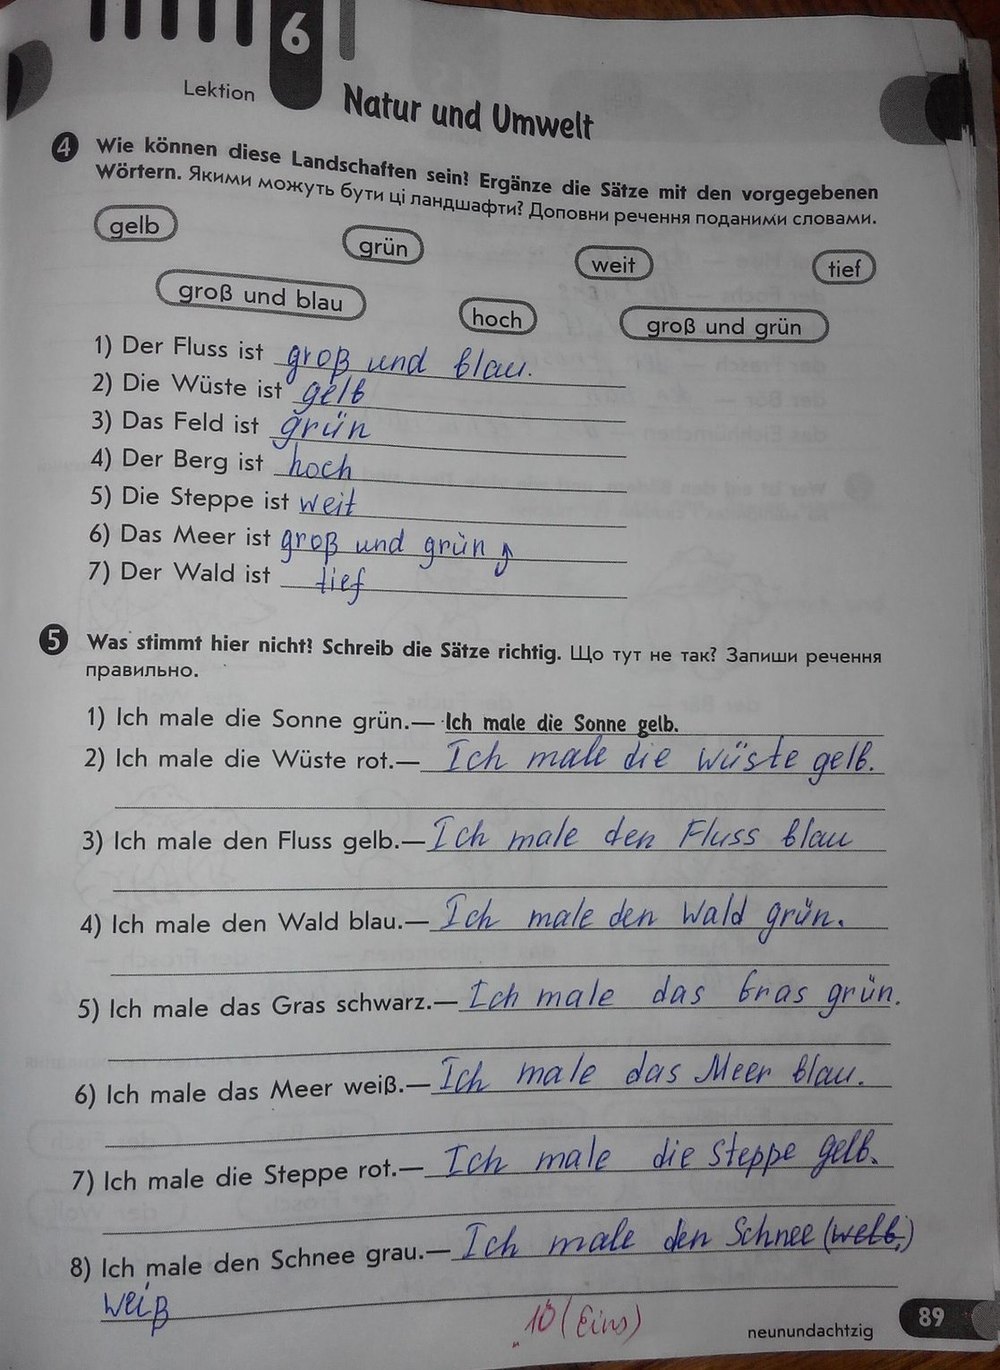 6
Lektion
Natur und Umwelt
4 Wie können diese Landschaften sein? Ergänze die Sätze mit den vorgegebenen
Wörtern. Якими можуть бути ці ландшафти? Доповни речення поданими словами.
gelb grün weit tief
groß und blau hoch groß und grün
1) Der Fluss ist groß und blau.
2) Die Wüste ist gelb
3) Das Feld ist grün
4) Der Berg ist hoch
5) Die Steppe ist weit
6) Das Meer ist groß und grün
7) Der Wald ist tief
5 Was stimmt hier nicht? Schreib die Sätze richtig. Що тут не так? Запиши речення
правильно.
1) Ich male die Sonne grün.— Ich male die Sonne gelb.
2) Ich male die Wüste rot.— Ich male die Wüste gelb.
3) Ich male den Fluss gelb.— Ich male den Fluss blau
4) Ich male den Wald blau.— Ich male den Wald grün.
5) Ich male das Gras schwarz.— Ich male das Gras grün.
6) Ich male das Meer weiß.— Ich male das Meer blau.
7) Ich male die Steppe rot.— Ich male die Steppe gelb.
8) Ich male den Schnee grau.— Ich male den Schnee
weiß
10 (Eins)
neunundachtzig 89